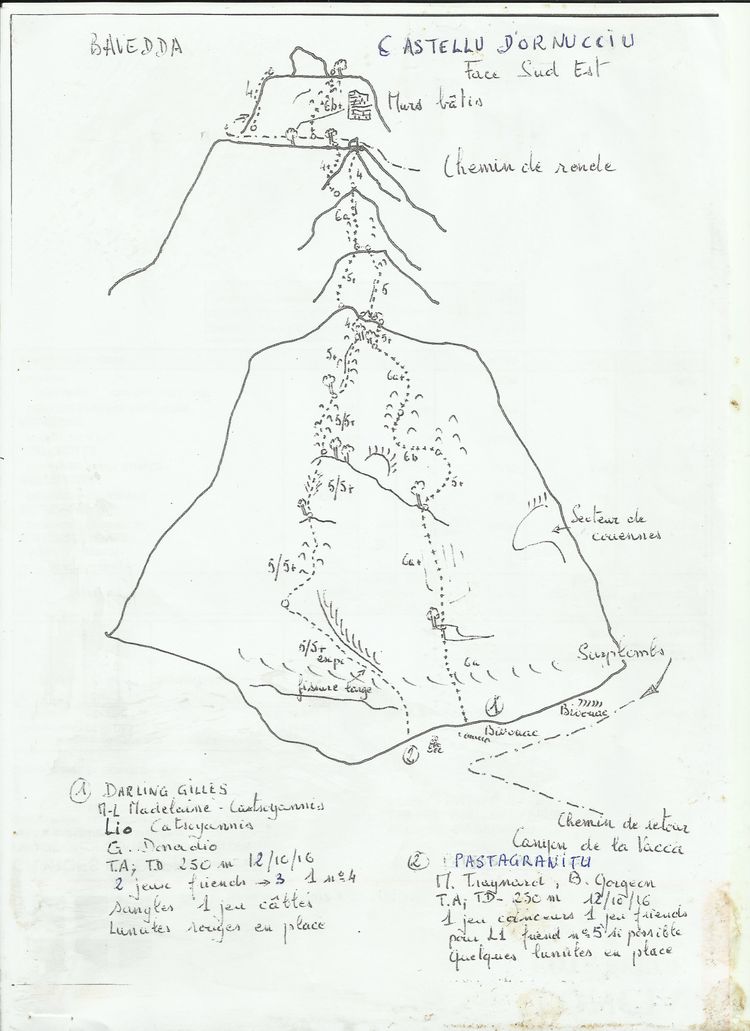 BAVEDDA
CASTELLU D'ORNUCCIU
Face Sud Est
4
6b+
Murs bâtis
Chemin de ronde
4+
4
6a
5+
5
4
5+
5+
6a+
5/5+
6b
5+
5/5+
Secteur de
couennes
5/5+
6a+
5/5+
expo
6a
Surplombs
fissure large
1
Bivouac
Bivouac
2
Chemin de retour
Canyon de la Vacca
1 DARLING GILLES
M-L Madelaine - Catsoyannis
Lio Catsoyannis
G. Donadio
T.A; TD 250 m 12/10/16
2 jeux friends → 3 1 n°4
Sangles 1 jeu câblés
Lunules rouges en place
2 PASTAGRANITU
M. Traynard, B. Gorgeon
T.A; TD- 250 m 12/10/16
1 jeu coinceurs 1 jeu friends
pour L1 friend n°5 si possible
Quelques lunules en place